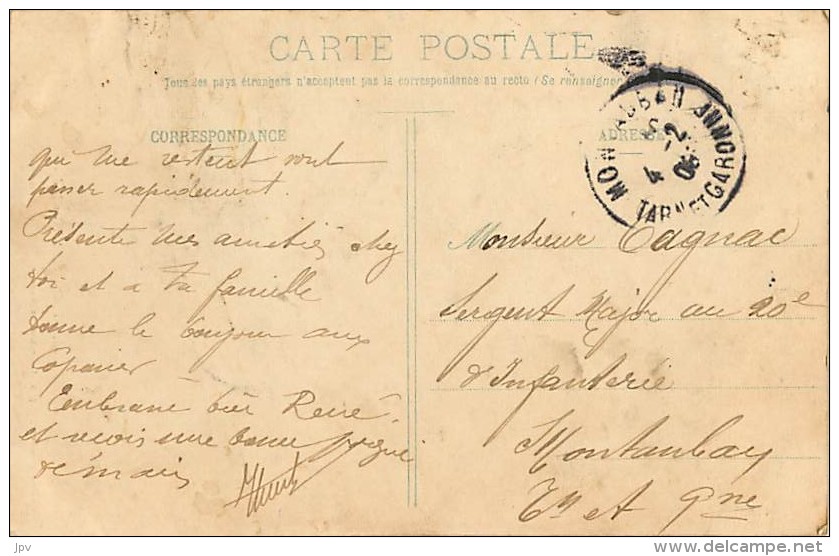 CARTE POSTALE
Tous les pays étrangers n'acceptent pas la correspondance au recto (Se renseigner
CORRESPONDANCE
ADRESSE
MONTAUBAN
TARN ET GARONNE
qui me restent vont
passer rapidement.
Présente mes amitiés chez
toi et à ta famille
donne le bonjour aux
Copains
Embrasse bien René
et reçois une bonne poignée
de mains
Monsieur Cagnac
Sergent Major au 20e
d'Infanterie
Montauban
Tn et Gne
delcampe.net
jpv